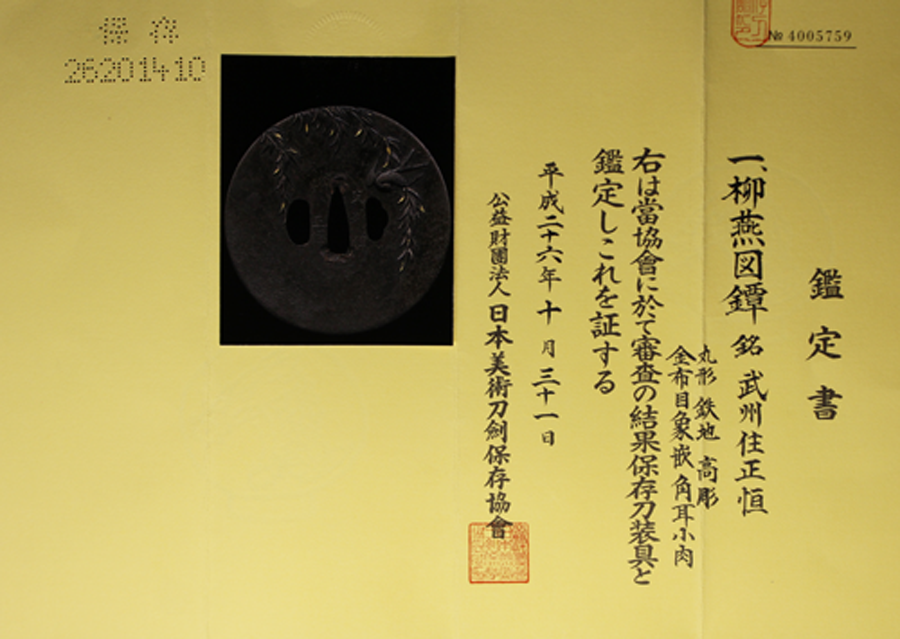 保存
26201410
№ 4005759
鑑定書
一、柳燕図鐔 銘 武州住正恒
丸形 鉄地 高彫
金布目象嵌 角耳小肉
右は當協會に於て審査の結果保存刀装具と
鑑定しこれを証する
平成二十六年 十月 三十一日
公益財團法人 日本美術刀劍保存協會